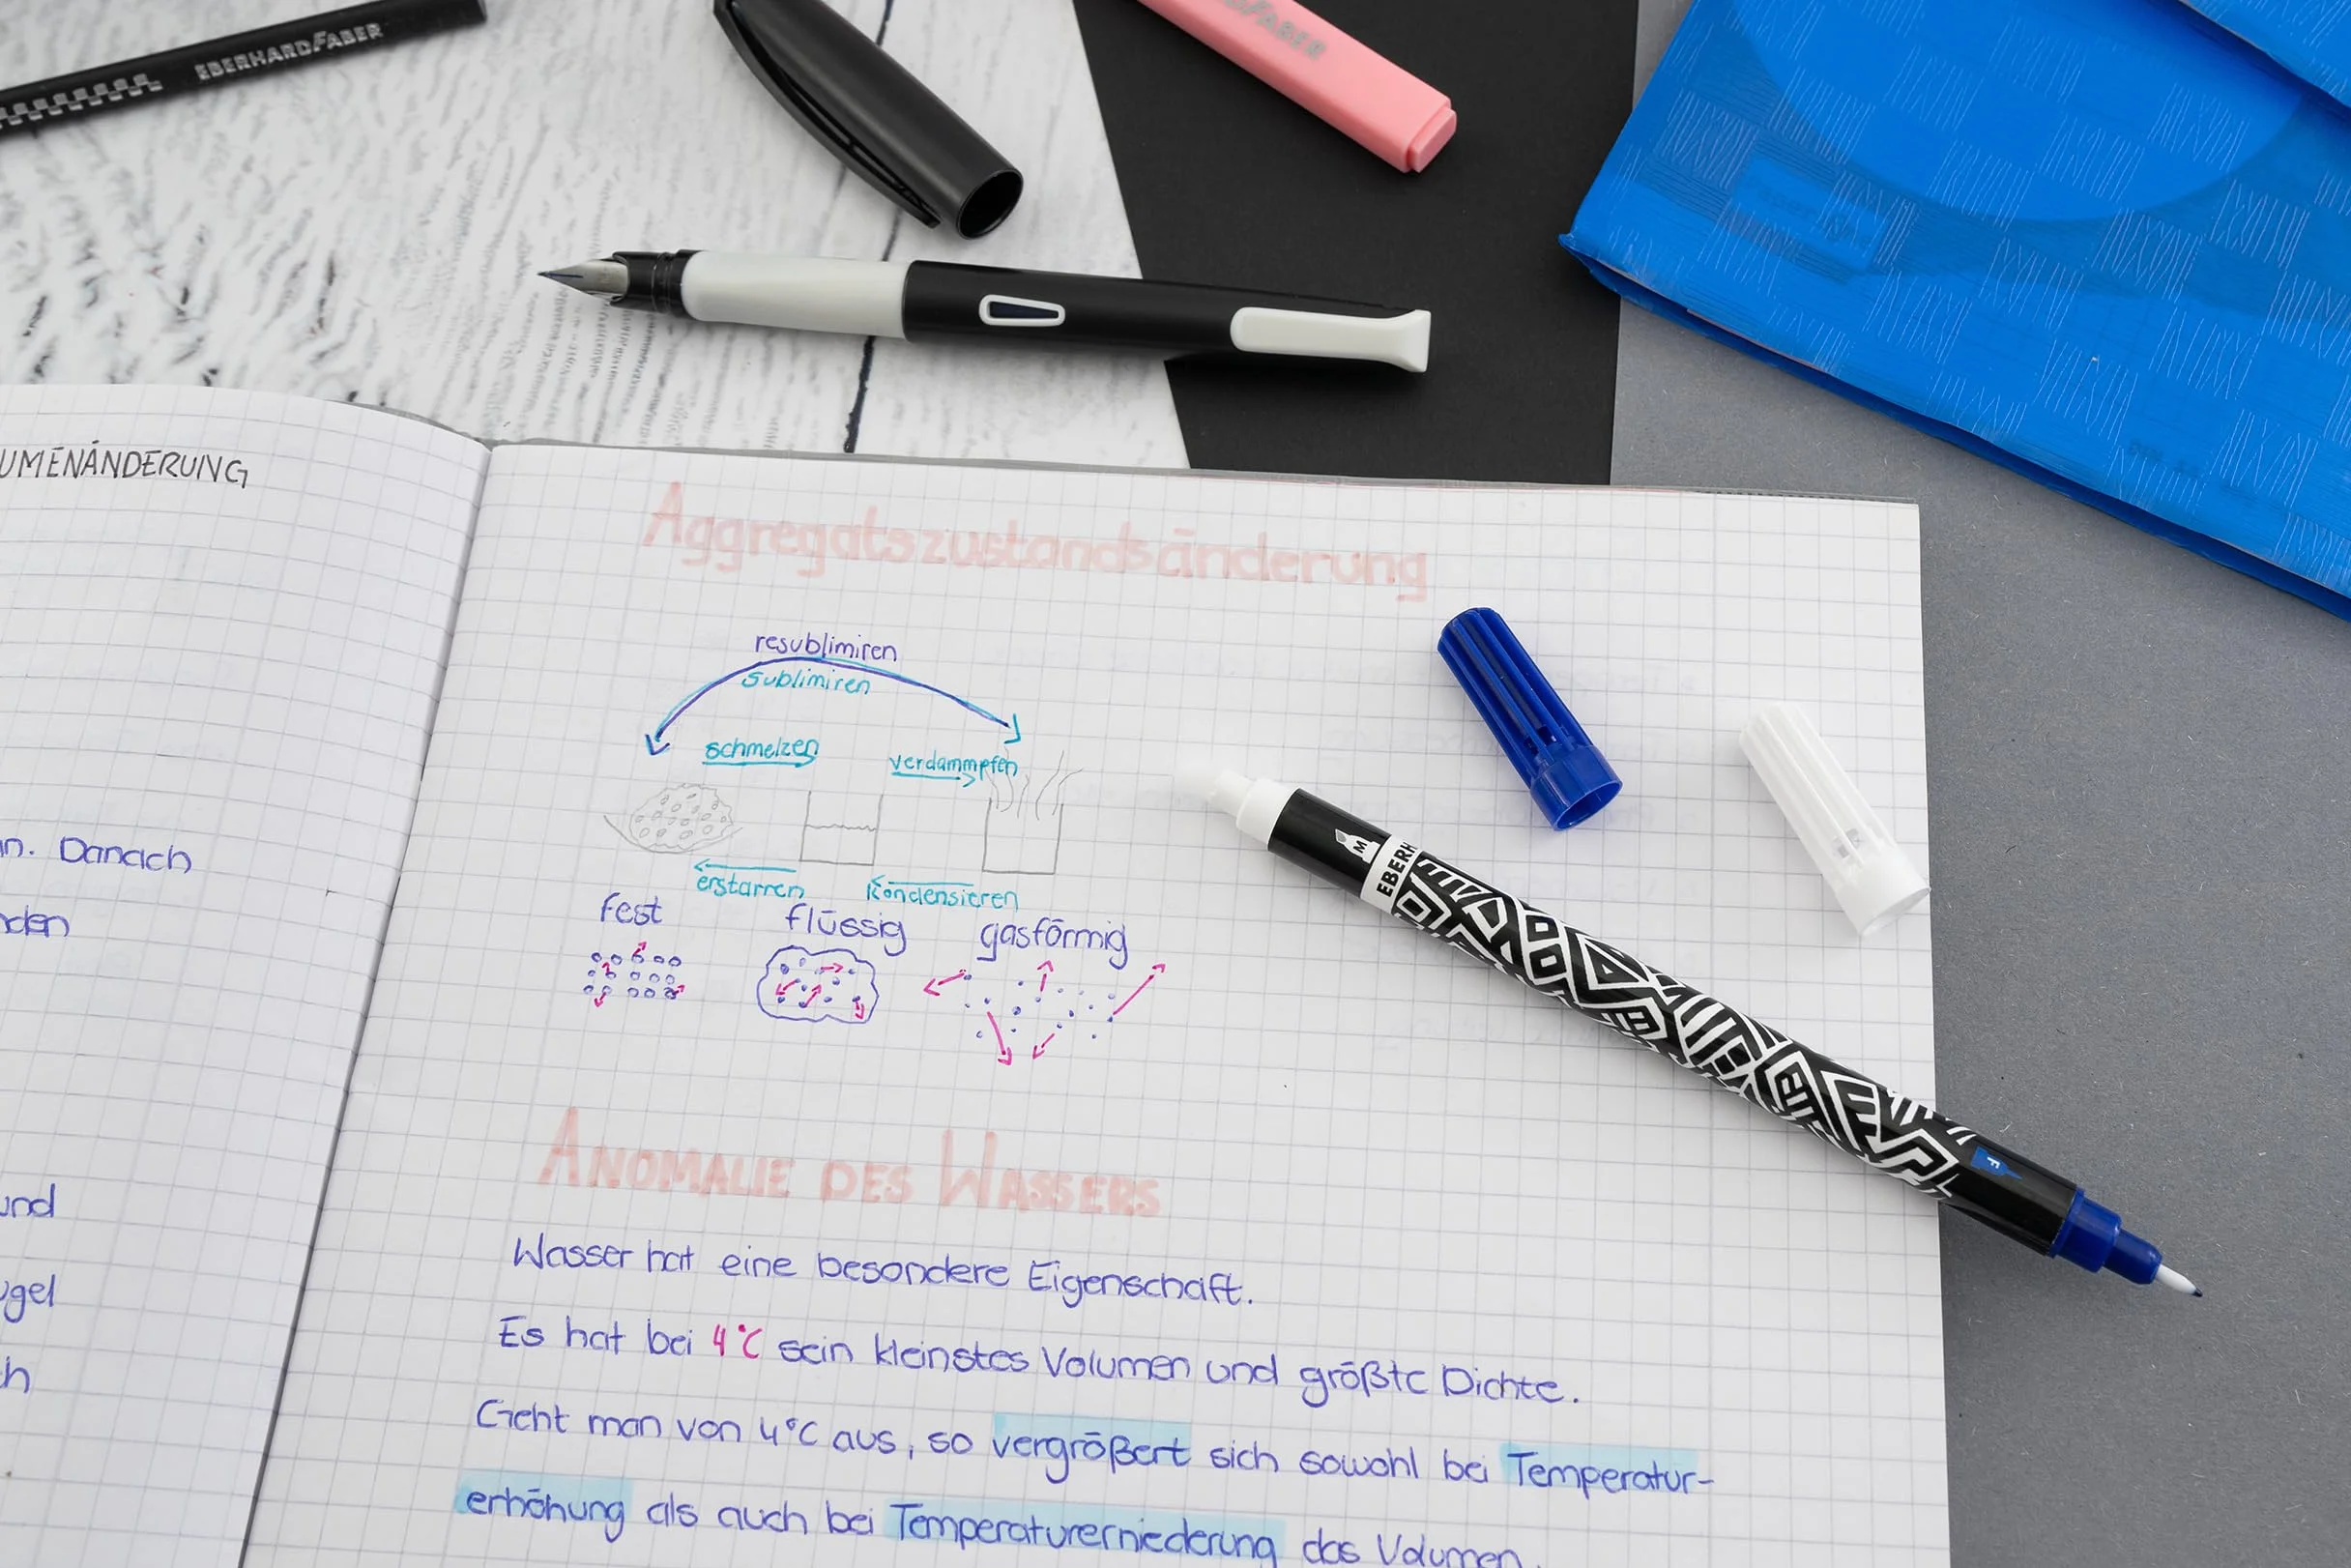 EBERHARDFABER
FABER
UMENÄNDERUNG
n. Danach
nden
und
ogel
ch
Aggregatszustandsänderung
resublimiren
sublimiren
schmelzen
verdammpfen
erstarren
Kondensieren
fest
flüssig
gasförmig
M
EBERH
F
ANOMALIE DES WASSERS
Wasser hat eine besondere Eigenschaft.
Es hat bei 4°C sein kleinstes Volumen und größte Dichte.
Geht man von 4°C aus, so vergrößert sich sowohl bei Temperatur-
erhöhung als auch bei Temperaturerniederung das Volumen.